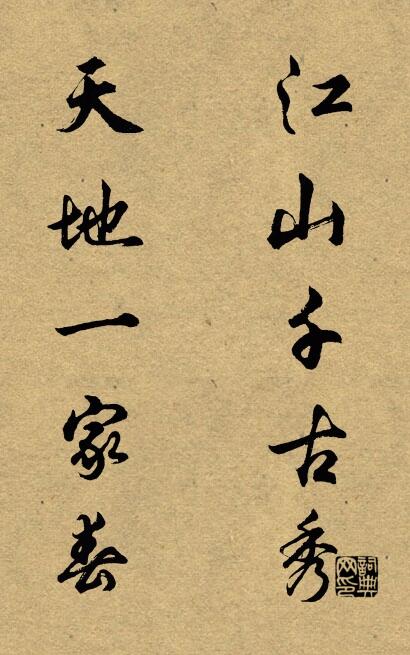 江山千古秀
天地一家春
詞典網印